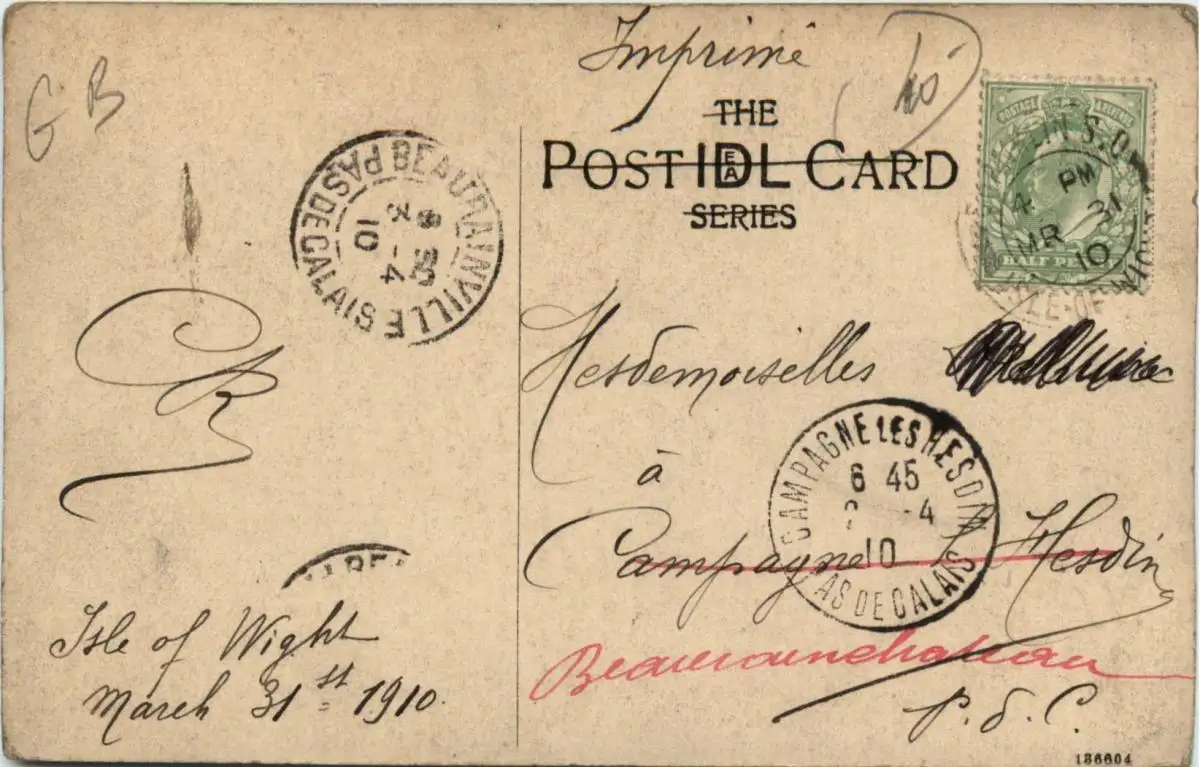 Imprimé
10
G B
THE
POST IDEAL CARD
SERIES
POSTAGE
HALF PE
S.O
4 PM
MR 31
10
ISLE-OF-WIGHT
BEAURAINVILLE
PAS DE CALAIS
3 -4
10
Mesdemoiselles
à
Campagne l Hesdin
Beaurainchateau
P.d.C.
CAMPAGNE LES HESDIN
6 45
-4
10
PAS DE CALAIS
Isle of Wight
March 31st 1910.
186604